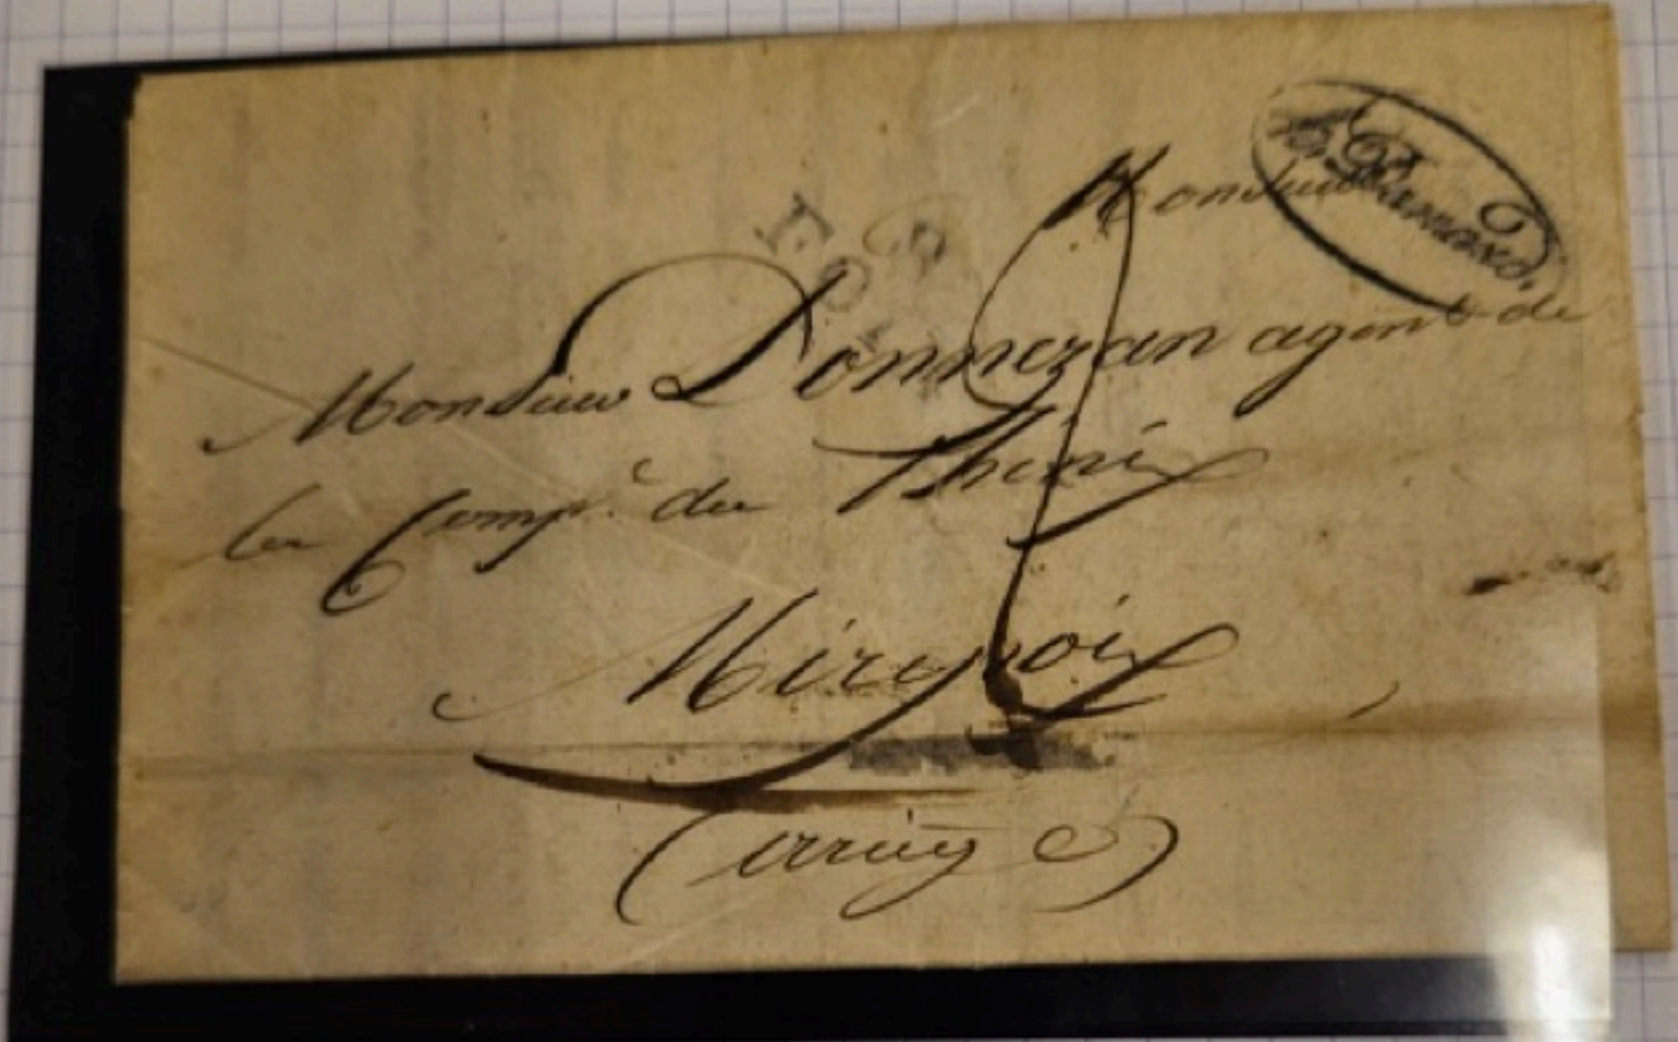 Monsieur
Monsieur Donnezan agent de
la Comp.e du Phenix
Mirepoix
(arriège)